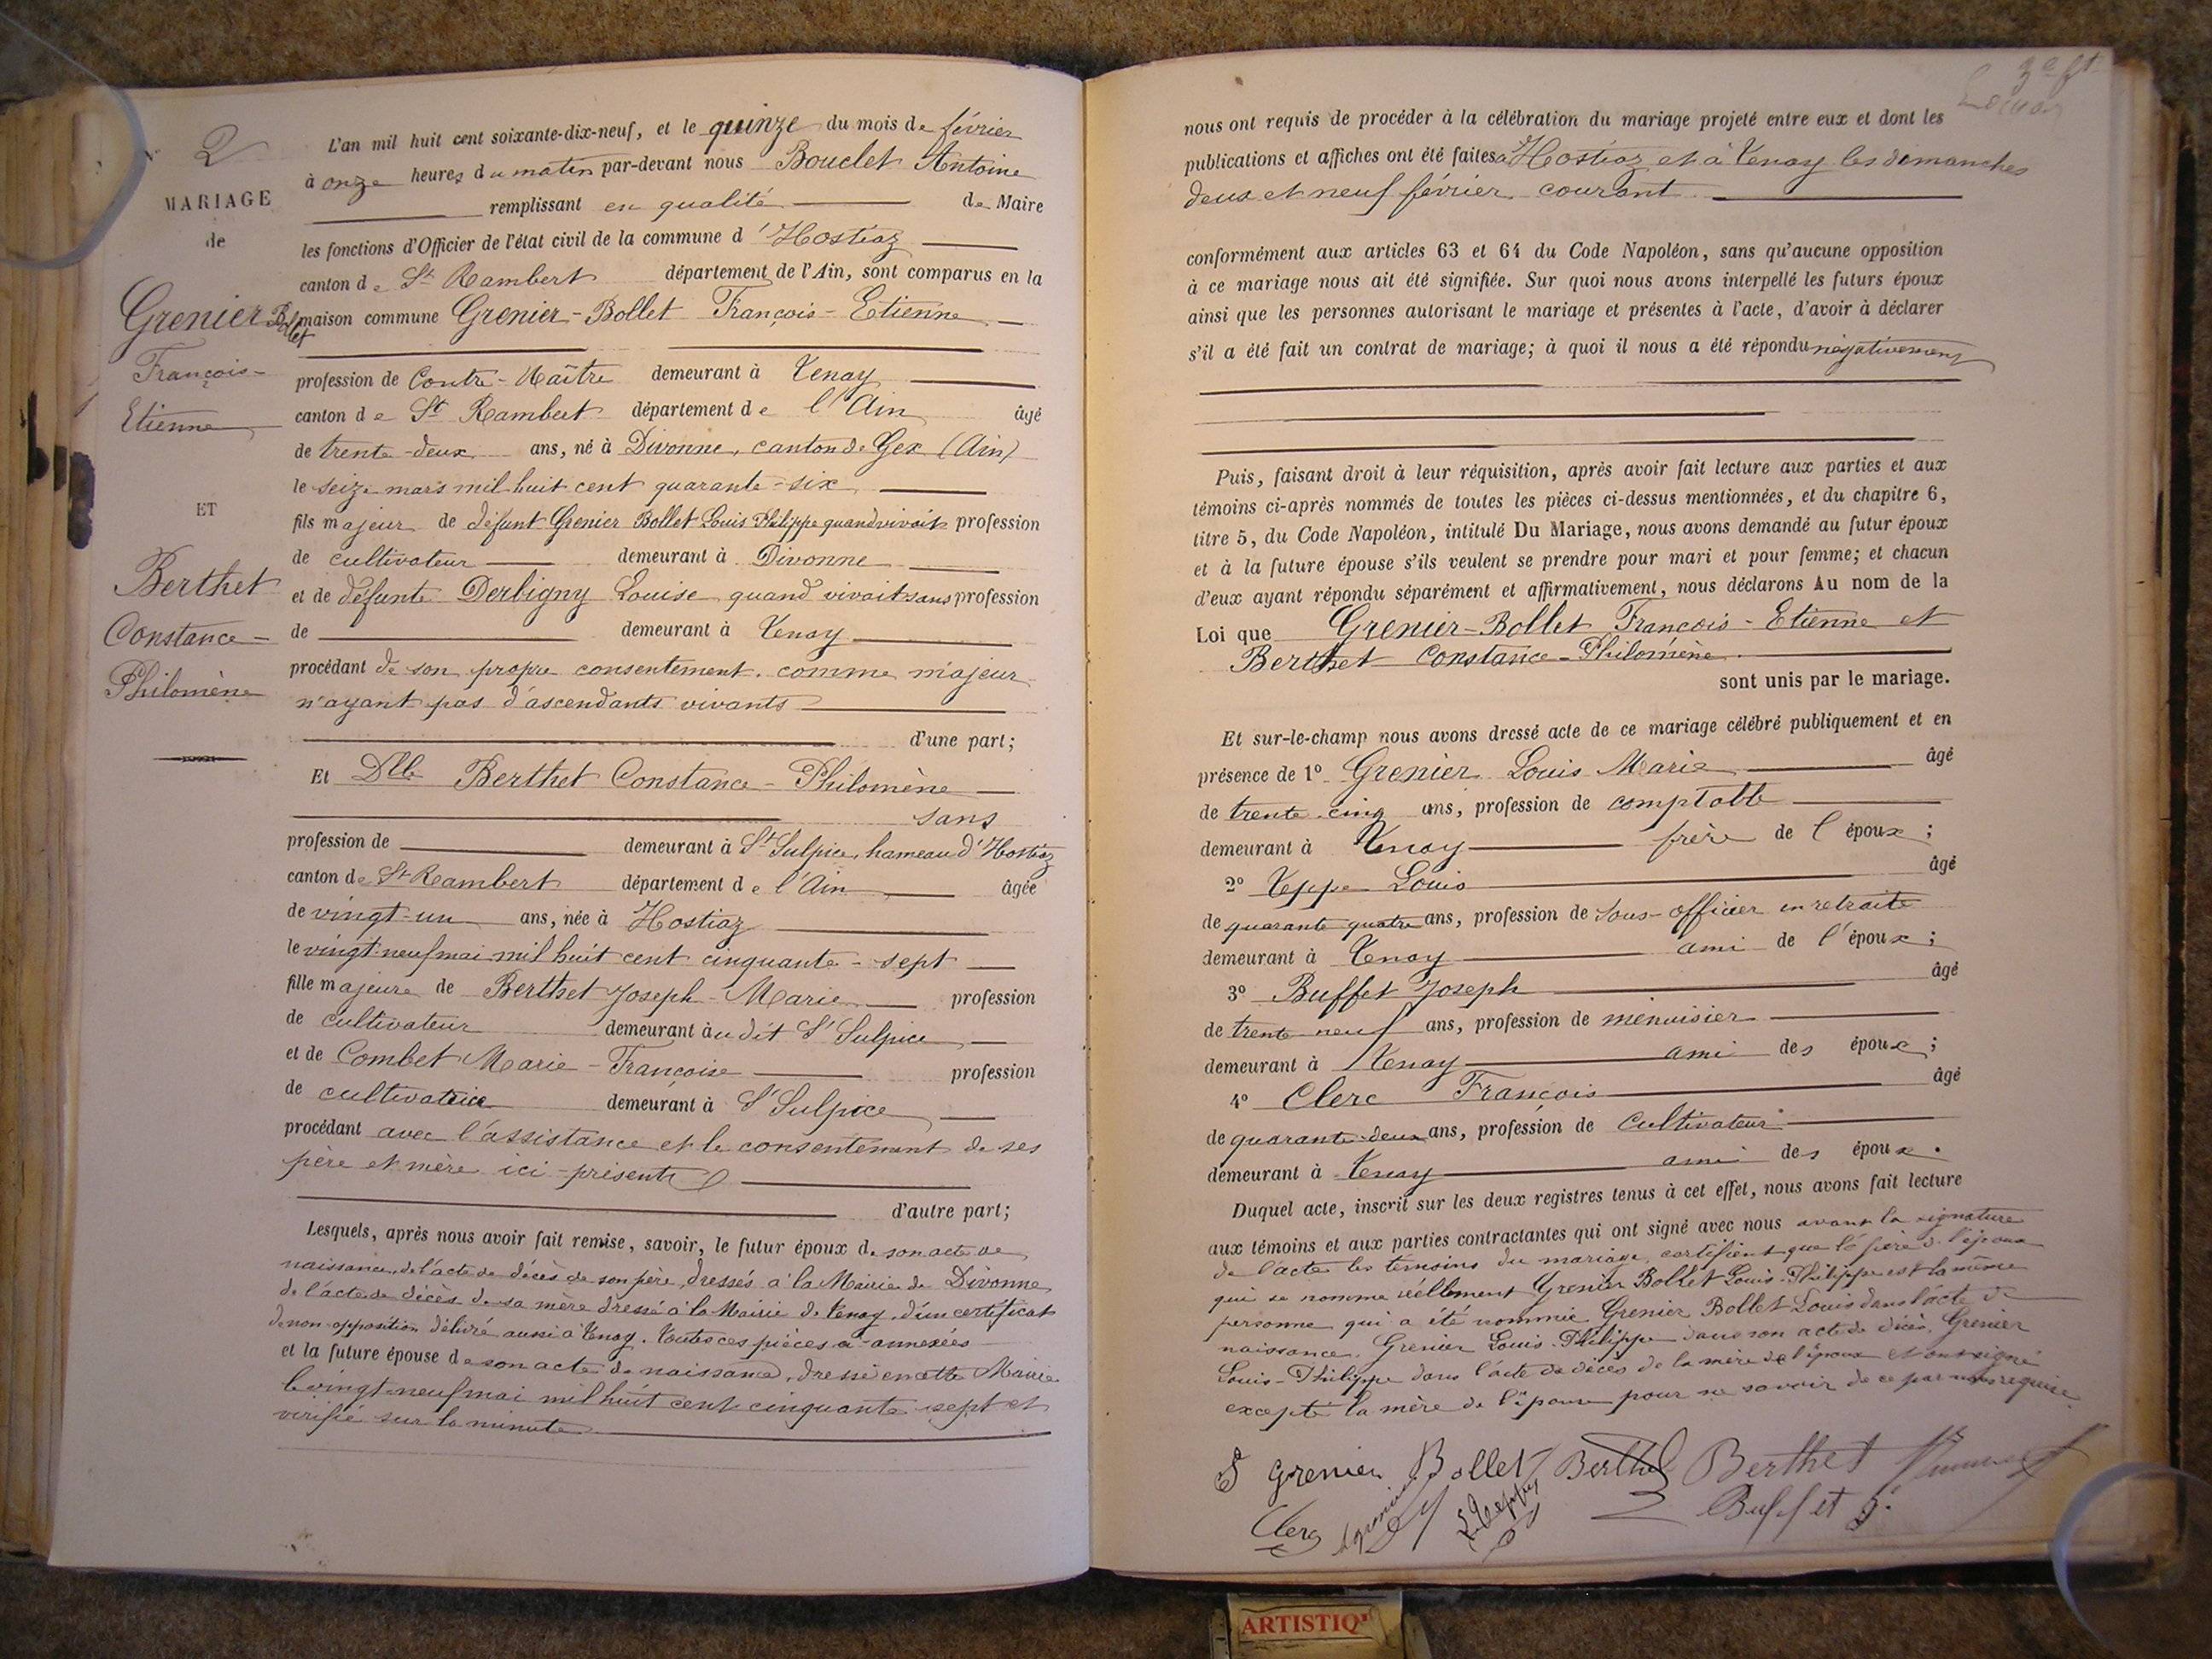 2
MARIAGE
de
Grenier Bollet
François-
Etienne
ET
Berthet
Constance-
Philomène
L'an mil huit cent soixante-dix-neuf, et le quinze du mois de février
à onze heures du matin par-devant nous Bouclet Antoine
remplissant en qualité de Maire
les fonctions d'Officier de l'état civil de la commune d'Hostiaz
canton de St Rambert département de l'Ain, sont comparus en la
maison commune Grenier-Bollet François-Etienne
profession de Contre-Maître demeurant à Tenay
canton de St Rambert département de l'Ain âgé
de trente-deux ans, né à Divonne, canton de Gex (Ain)
le seize mars mil huit cent quarante-six
fils majeur de défunt Grenier Bollet Louis Philippe quand vivait profession
de cultivateur demeurant à Divonne
et de défunte Derbigny Louise quand vivait sans profession
de demeurant à Tenay
procédant de son propre consentement comme majeur
n'ayant pas d'ascendants vivants
d'une part;
Et Dlle Berthet Constance-Philomène
sans
profession de demeurant à St Sulpice, hameau d'Hostiaz
canton de St Rambert département de l'Ain âgée
de vingt-un ans, née à Hostiaz
le vingt-neuf mai mil huit cent cinquante-sept
fille majeure de Berthet Joseph-Marie profession
de cultivateur demeurant au dit St Sulpice
et de Combet Marie-Françoise profession
de cultivatrice demeurant à St Sulpice
procédant avec l'assistance et le consentement de ses
père et mère ici-présents
d'autre part;
Lesquels, après nous avoir fait remise, savoir, le futur époux de son acte de
naissance, de l'acte de décès de son père, dressés à la Mairie de Divonne
de l'acte de décès de sa mère dressé à la Mairie de Tenay, d'un certificat
de non-opposition délivré aussi à Tenay. Toutes ces pièces ci-annexées
et la future épouse de son acte de naissance, dressé en cette Mairie
le vingt-neuf mai mil huit cent cinquante sept et
vérifié sur la minute
nous ont requis de procéder à la célébration du mariage projeté entre eux et dont les
publications et affiches ont été faites à Hostiaz et à Tenay les dimanches
deux et neuf février courant
conformément aux articles 63 et 64 du Code Napoléon, sans qu'aucune opposition
à ce mariage nous ait été signifiée. Sur quoi nous avons interpellé les futurs époux
ainsi que les personnes autorisant le mariage et présentes à l'acte, d'avoir à déclarer
s'il a été fait un contrat de mariage; à quoi il nous a été répondu négativement
Puis, faisant droit à leur réquisition, après avoir fait lecture aux parties et aux
témoins ci-après nommés de toutes les pièces ci-dessus mentionnées, et du chapitre 6,
titre 5, du Code Napoléon, intitulé Du Mariage, nous avons demandé au futur époux
et à la future épouse s'ils veulent se prendre pour mari et pour femme; et chacun
d'eux ayant répondu séparément et affirmativement, nous déclarons Au nom de la
Loi que Grenier-Bollet François-Etienne et
Berthet Constance-Philomène
sont unis par le mariage.
Et sur-le-champ nous avons dressé acte de ce mariage célébré publiquement et en
présence de 1° Grenier Louis Marie âgé
de trente-cinq ans, profession de comptable
demeurant à Tenay frère de l'époux;
2° Teppe Louis âgé
de quarante quatre ans, profession de sous-officier en retraite
demeurant à Tenay ami de l'époux;
3° Buffet Joseph âgé
de trente neuf ans, profession de menuisier
demeurant à Tenay ami des époux;
4° Clerc François âgé
de quarante-deux ans, profession de cultivateur
demeurant à Tenay ami des époux.
Duquel acte, inscrit sur les deux registres tenus à cet effet, nous avons fait lecture
aux témoins et aux parties contractantes qui ont signé avec nous avant la signature
de l'acte les témoins du mariage, certifient que le père de l'époux
qui se nomme réellement Grenier Bollet Louis-Philippe est la même
personne qui a été nommée Grenier Bollet Louis dans l'acte de
naissance, Grenier Louis-Philippe dans son acte de décès, Grenier
Louis-Philippe dans l'acte de décès de la mère de l'époux et ont signé
excepté la mère de l'épouse pour ne savoir de ce par nous requise
Grenier Bollet Berthet Berthet
Clerc Grenier Buffet J.
ARTISTIQ